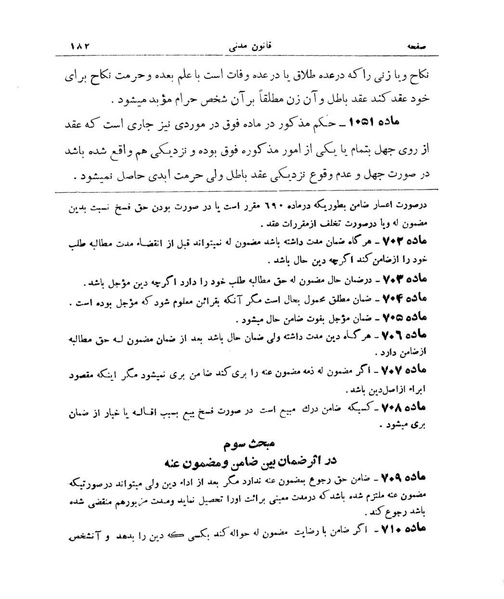 صفحه قانون مدنی ۱۸۲
نکاح ویا زنی راکه درعده طلاق یا درعده وفات است با علم بعده وحرمت نکاح برای
خود عقد کند عقد باطل وآن زن مطلقاً بر آن شخص حرام مؤبد میشود .
ماده ۱۰۵۱ – حکم مذکور در ماده فوق در موردی نیز جاری است که عقد
از روی جهل بتمام یا یکی از امور مذکوره فوق بوده و نزدیکی هم واقع شده باشد
در صورت جهل و عدم وقوع نزدیکی عقد باطل ولی حرمت ابدی حاصل نمیشود .
درصورت اعسار ضامن بطوریکه درماده ۶۹۰ مقرر است یا در صورت بودن حق فسخ نسبت بدین
مضمون له ویا درصورت تخلف ازمقررات عقد .
ماده ۷۰۲ – هرگاه ضمان مدت داشته باشد مضمون له نمیتواند قبل از انقضاء مدت مطالبه طلب
خود را ازضامن کند اگرچه دین حال باشد .
ماده ۷۰۳ – درضمان حال مضمون له حق مطالبه طلب خود را دارد اگرچه دین مؤجل باشد .
ماده ۷۰۴ – ضمان مطلق محمول بحال است مگر آنکه بقرائن معلوم شود که مؤجل بوده است .
ماده ۷۰۵ – ضمان مؤجل بفوت ضامن حال میشود .
ماده ۷۰۶ – هرگاه دین مدت داشته ولی ضمان حال باشد بعد از ضمان مضمون له حق مطالبه
ازضامن دارد .
ماده ۷۰۷ – اگر مضمون له ذمه مضمون عنه را بری کند ضامن بری نمیشود مگر اینکه مقصود
ابراء ازاصل‌دین باشد .
ماده ۷۰۸ – کسیکه ضامن درك مبیع است در صورت فسخ بیع بسبب اقاله یا خیار از ضمان
بری میشود .
مبحث سوم
در اثرضمان بین ضامن ومضمون عنه
ماده ۷۰۹ – ضامن حق رجوع بمضمون عنه ندارد مگر بعد از اداء دین ولی میتواند درصورتیکه
مضمون عنه ملتزم شده باشد که درمدت معینی برائت اورا تحصیل نماید ومدت مزبورهم منقضی شده
باشد رجوع کند .
ماده ۷۱۰ – اگر ضامن با رضایت مضمون له حواله کند بکسی که دین را بدهد و آنشخص